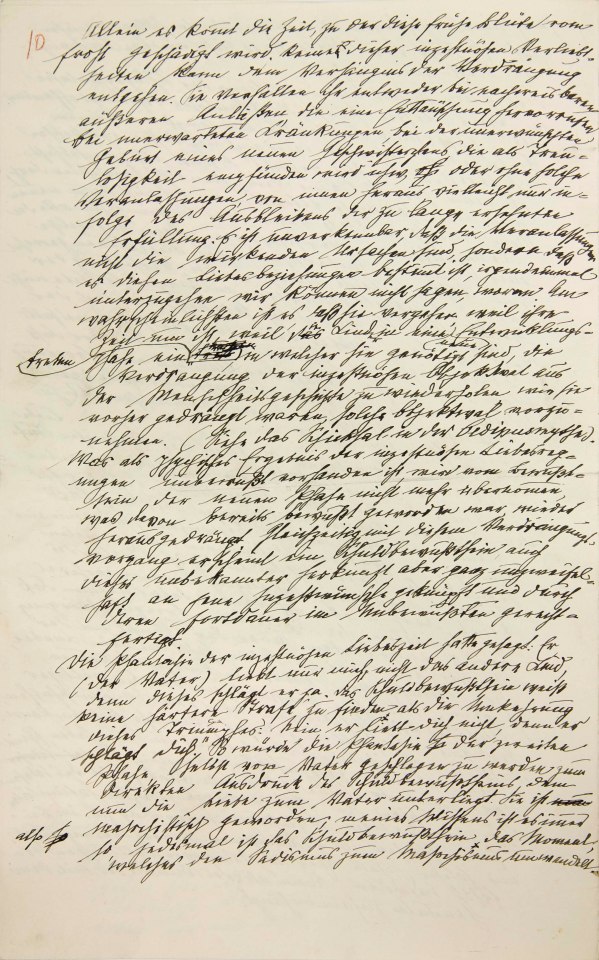 10
Allein es kommt die Zeit, zu der diese frühe Blüte vom
Frost geschädigt wird. Keine dieser inzestuösen Verliebt-
heiten kann dem Verhängnis der Verdrängung
entgehen. Sie verfallen ihr entweder bei nachweisbaren
äußeren Anlässen, die eine Enttäuschung hervorrufen
bei unerwarteten Kränkungen bei der unerwünschten
Geburt eines neuen Geschwisterchens die als Treu-
losigkeit empfunden wird usw, oder ohne solche
Veranlassungen, von innen heraus vielleicht nur in-
folge des Ausbleibens der zu lange ersehnten
Erfüllung. Es ist unverkennbar daß die Veranlassungen
nicht die wirkenden Ursachen sind, sondern daß
es diesen Liebesbeziehungen bestimmt ist, irgendeinmal
unterzugehen, wir können nicht sagen, woran. Am
wahrscheinlichsten ist es daß sie vergehen weil ihre
Zeit um ist, weil das Kind in eine neue Entwicklungs-
phase ein treten in welcher sie genötigt sind, die
Verdrängung der inzestuösen Objektwal aus
der Menschheitsgeschichte zu wiederholen wie sie
vorher gedrängt waren, solche Objektwal vorzu-
nehmen. (Siehe das Schicksal in der Oedipusmythe).
Was als psychisches Ergebnis der inzestuösen Liebesreg-
ungen unbewußt vorhanden ist wird vom Bewußt-
sein der neuen Phase nicht mehr übernommen,
was davon bereits bewußt geworden war, wieder
herausgedrängt. Gleichzeitig mit diesem Verdrängungs-
vorgang erscheint ein Schuldbewußtsein auch
dieses unbekannter Herkunft aber ganz unzweifel-
haft an jene Inzestwünsche geknüpft und durch
deren Fortdauer im Unbewußten gerecht-
fertigt.
Die Phantasie der inzestuösen Liebeszeit hatte gesagt: Er
(der Vater) liebt nur mich, nicht das andere Kind,
denn dieses schlägt er ja. Das Schuldbewußtsein weiß
keine härtere Strafe zu finden als die Umkehrung
dieses Triumphes: Nein er liebt dich nicht, denn er
schlägt dich. So würde die Phantasie der zweiten
Phase selbst vom Vater geschlagen zu werden zum
direkten Ausdruck des Schuldbewußtseins, dem
nun die Liebe zum Vater unterliegt. Sie ist
also masochistisch geworden; meines Wissens ist es immer
so jedesmal ist das Schuldbewußtsein das Moment,
welches den Sadismus zum Masochismus umwandelt.